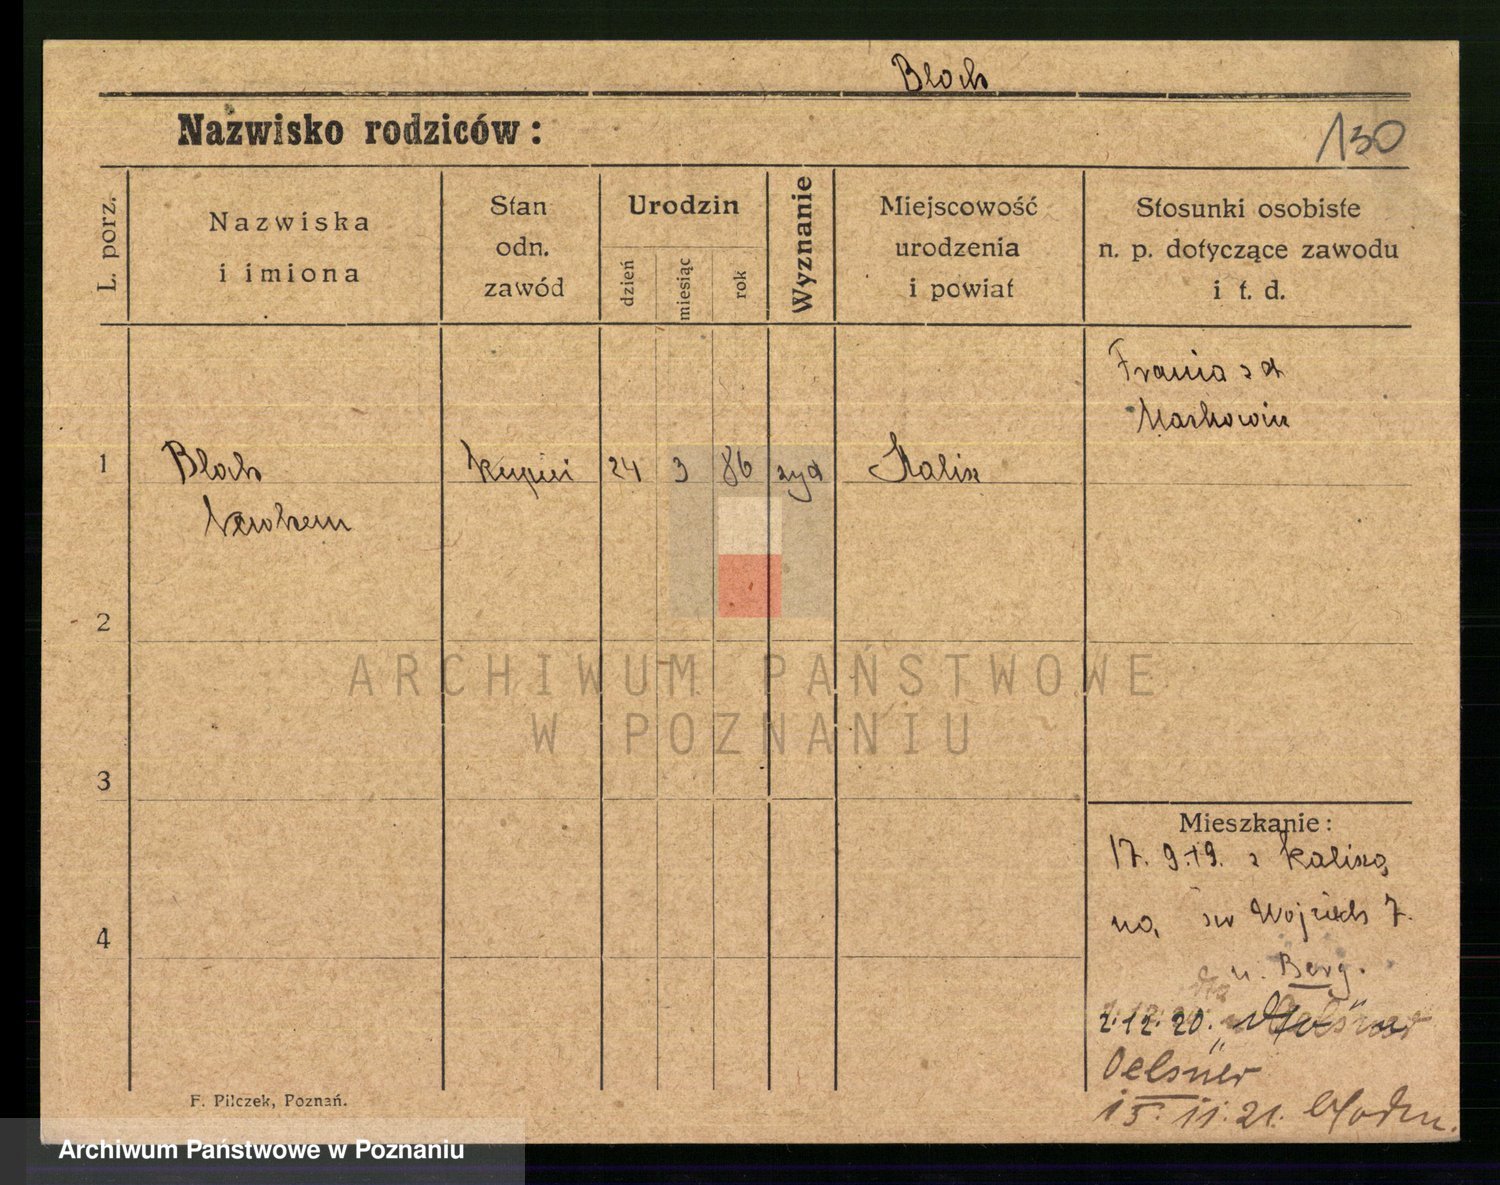 Bloch
Nazwisko rodziców:
130
L. porz.
Nazwiska
i imiona
Stan
odn.
zawód
Urodzin
dzień
miesiąc
rok
Wyznanie
Miejscowość
urodzenia
i powiat
Stosunki osobiste
n. p. dotyczące zawodu
i t. d.
Frania z d
1
Bloch
24
3
86
żyd
Kalisz
2
ARCHIWUM PAŃSTWOWE
W POZNANIU
3
Mieszkanie:
17. 9.19. z Kalisza
na, św Wojciech 7.
4
u. Berg.
2.12.20.
Oelsner
15. 11. 21.
F. Pilczek, Poznań.
Archiwum Państwowe w Poznaniu